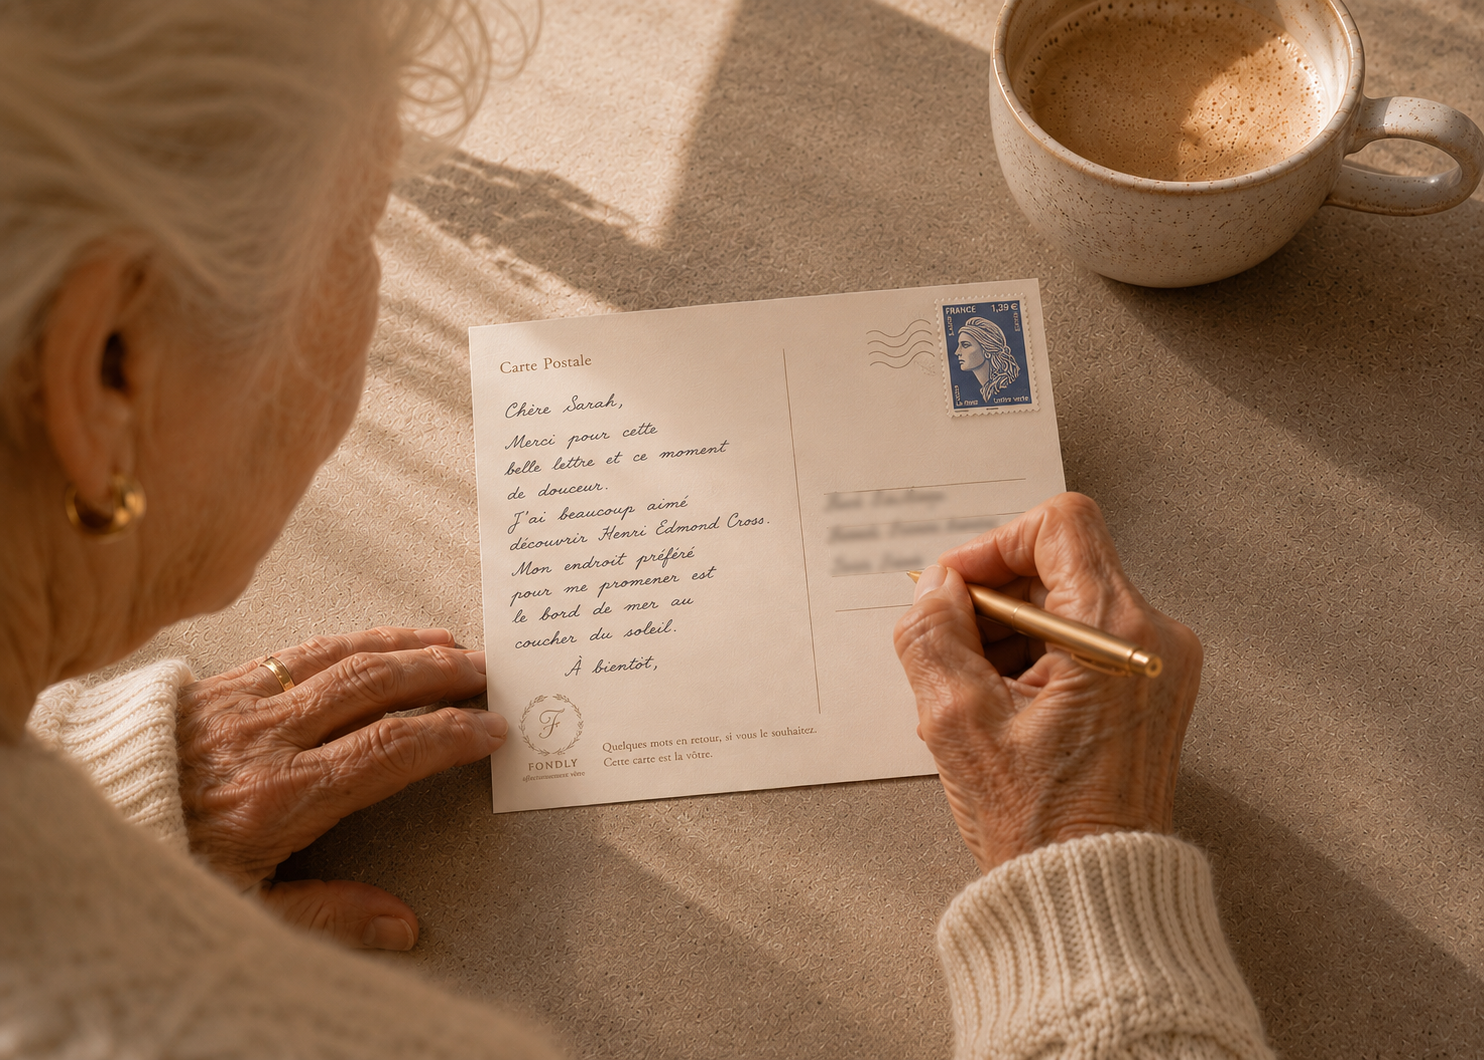 Carte Postale
Chère Sarah,
Merci pour cette
belle lettre et ce moment
de douceur.
J'ai beaucoup aimé
découvrir Henri Edmond Cross.
Mon endroit préféré
pour me promener est
le bord de mer au
coucher du soleil.
À bientôt,
F
FONDLY
affectueusement vôtre
Quelques mots en retour, si vous le souhaitez.
Cette carte est la vôtre.
FRANCE 1,39 €
Lettre verte